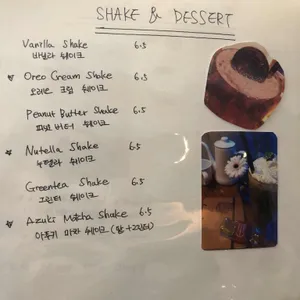 SHAKE & DESSERT
Vanilla Shake 6.5
바닐라 쉐이크
Oreo Cream Shake 6.5
오레오 크림 쉐이크
Peanut Butter Shake 6.5
피넛 버터 쉐이크
Nutella Shake 6.5
누텔라 쉐이크
Greentea Shake 6.5
그린티 쉐이크
Azuki Mocha Shake 6.5
아쥬키 마차 쉐이크 (팥+그린티)